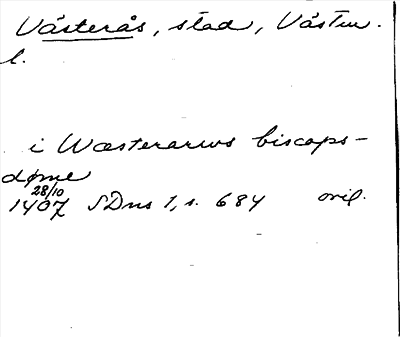 Västerås, stad, Västm.
l.
i Wæsterarws biscops-
døme
28/10
1407 SDns 1, s. 684 orig.